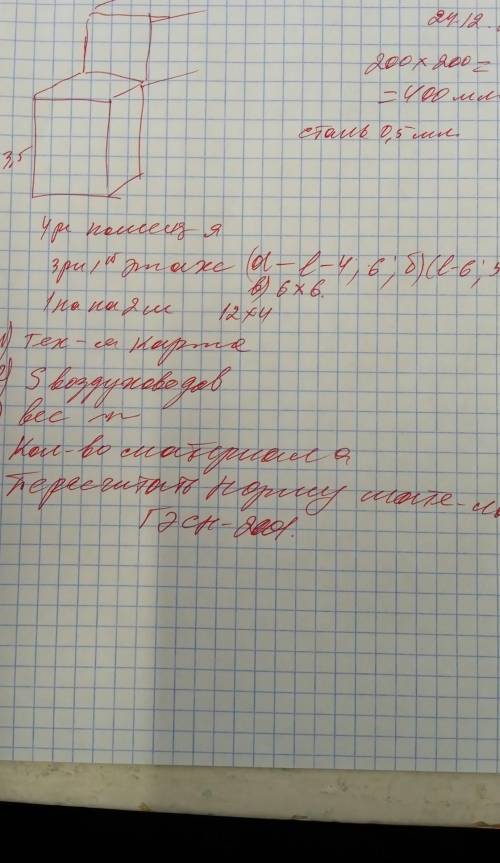 24.12.
200 x 200 =
= 400 мм
сталь 0,5 мм.
3,5
4ри помещ я
3 ри 1ый этаже (а – в – 4; 6; б) (в-6; 5
в) 6 x 6.
1 на на 2 м 12 x 4
1) Тех-ая карта
2) S воздуховодов
вес
Кол-во материала
Пересчитать норму мате-
ГЭСН-2001.